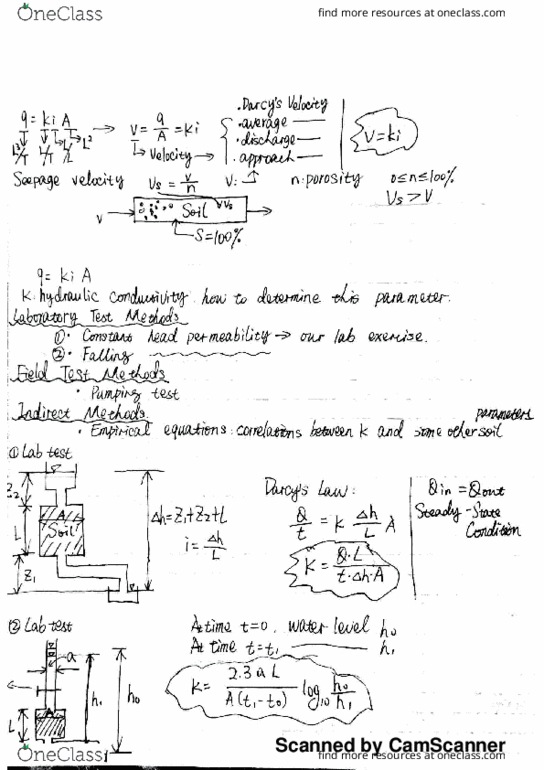 OneClass
find more resources at oneclass.com
q = k i A → v = q/A = ki
L³/T L/T L/L L²
↳ velocity →
• Darcy's Velocity
• average ——
• discharge ——
• approach ——
v = ki
Seepage velocity Vs = v/n V: n: porosity 0 ≤ n ≤ 100%
Vs > V
V → Soil Vs →
S = 100%
q = ki A
K: hydraulic conductivity. how to determine this parameter.
Laboratory Test Methods
①· Constant head permability → our lab exercise.
②· Falling
Field Test Methods
· Pumping test
Indirect Methods
parameters
· Empirical equations: correlations between k and some other soil
① Lab test
Z2
L
Z1
A
Soil
Δh = Z1 + Z2 + L
i = Δh/L
Darcy's Law:
Q/t = K Δh/L A
K = Q·L / t·Δh·A
Qin = Qout
Steady-State
Condition
② Lab test
a
L
A
h1
h0
At time t=0, water level h0
At time t=t1 —— h1
K = 2.3 a L / A(t1-t0) log10 h0/h1
Scanned by CamScanner
OneClass
find more resources at oneclass.com